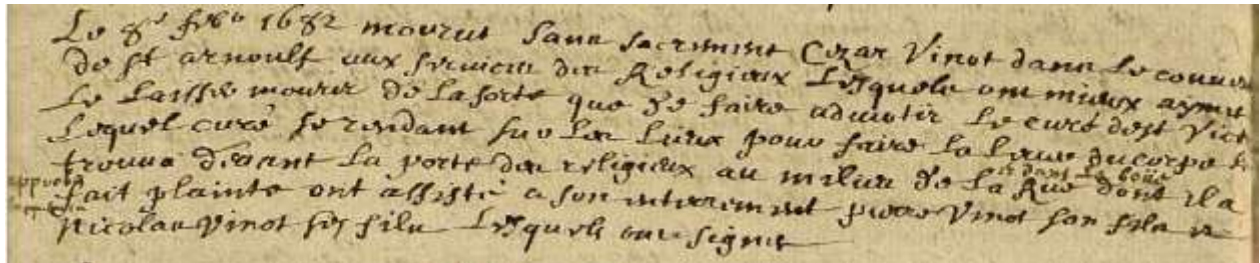 Le 8e feb 1682 mourut sans sacrement Cezar Vinot dans le couvent
de st arnoult aux services des Religieux Lesquels ont mieux aymé
Le Laisser mourir de la sorte que de faire advertir Le curé de st Vict
Lequel curé se rendant sur les lieux pour faire la levée du corps le
trouva devant la porte des religieux au milieu de la Rue et dans la boue dont il a
fait plainte ont assisté a son interrement pierre Vinot son fils et
Nicolas Vinot ses fils Lesquels ont signé